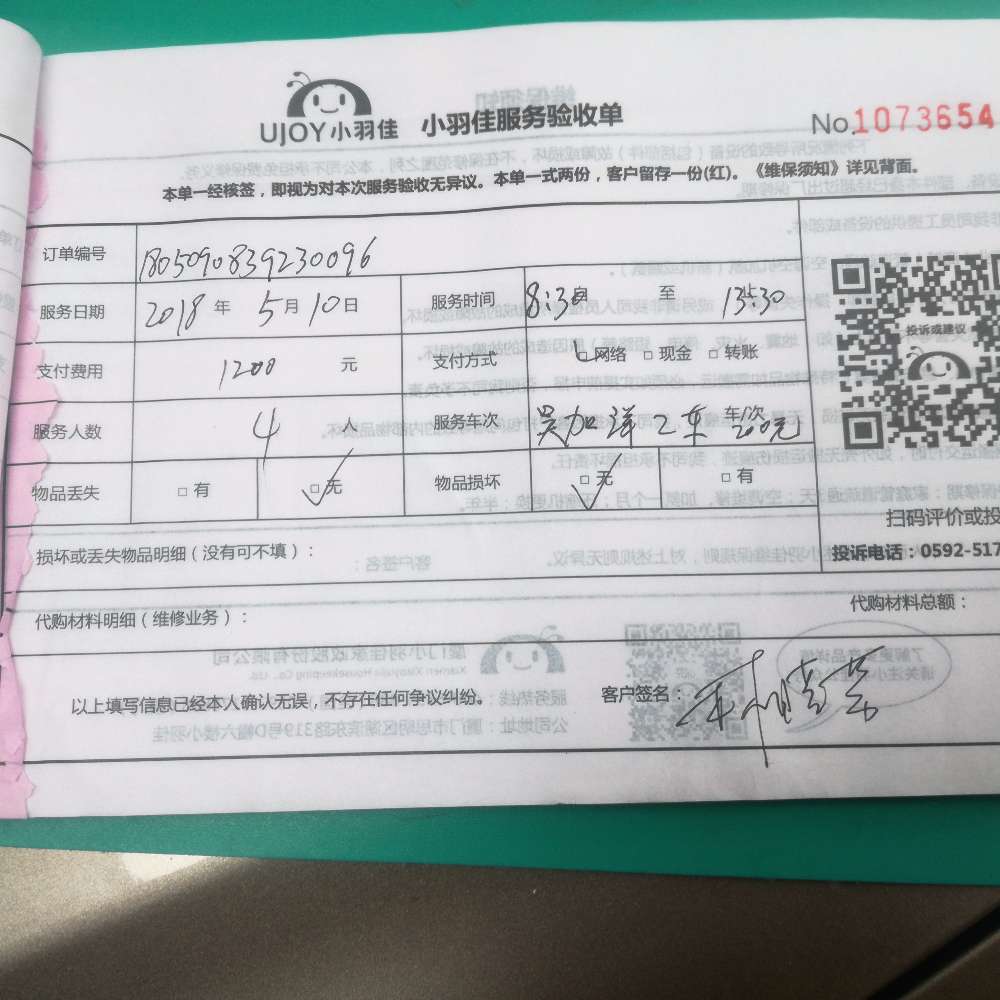 UJOY小羽佳 小羽佳服务验收单
No.1073654
本单一经核签，即视为对本次服务验收无异议。本单一式两份，客户留存一份(红)。《维保须知》详见背面。
订单编号 1805090839230096
服务日期 2018年5月10日 服务时间 8:30 至 13:30
支付费用 1200 元 支付方式 网络 □现金 □转账
投诉或建议
服务人数 4 人 服务车次 2车 车/次 200元
物品丢失 □有 □无 物品损坏 □无 □有
扫码评价或投
损坏或丢失物品明细（没有可不填）：
投诉电话：0592-517
代购材料明细（维修业务）：
代购材料总额：
以上填写信息已经本人确认无误，不存在任何争议纠纷。
客户签名：